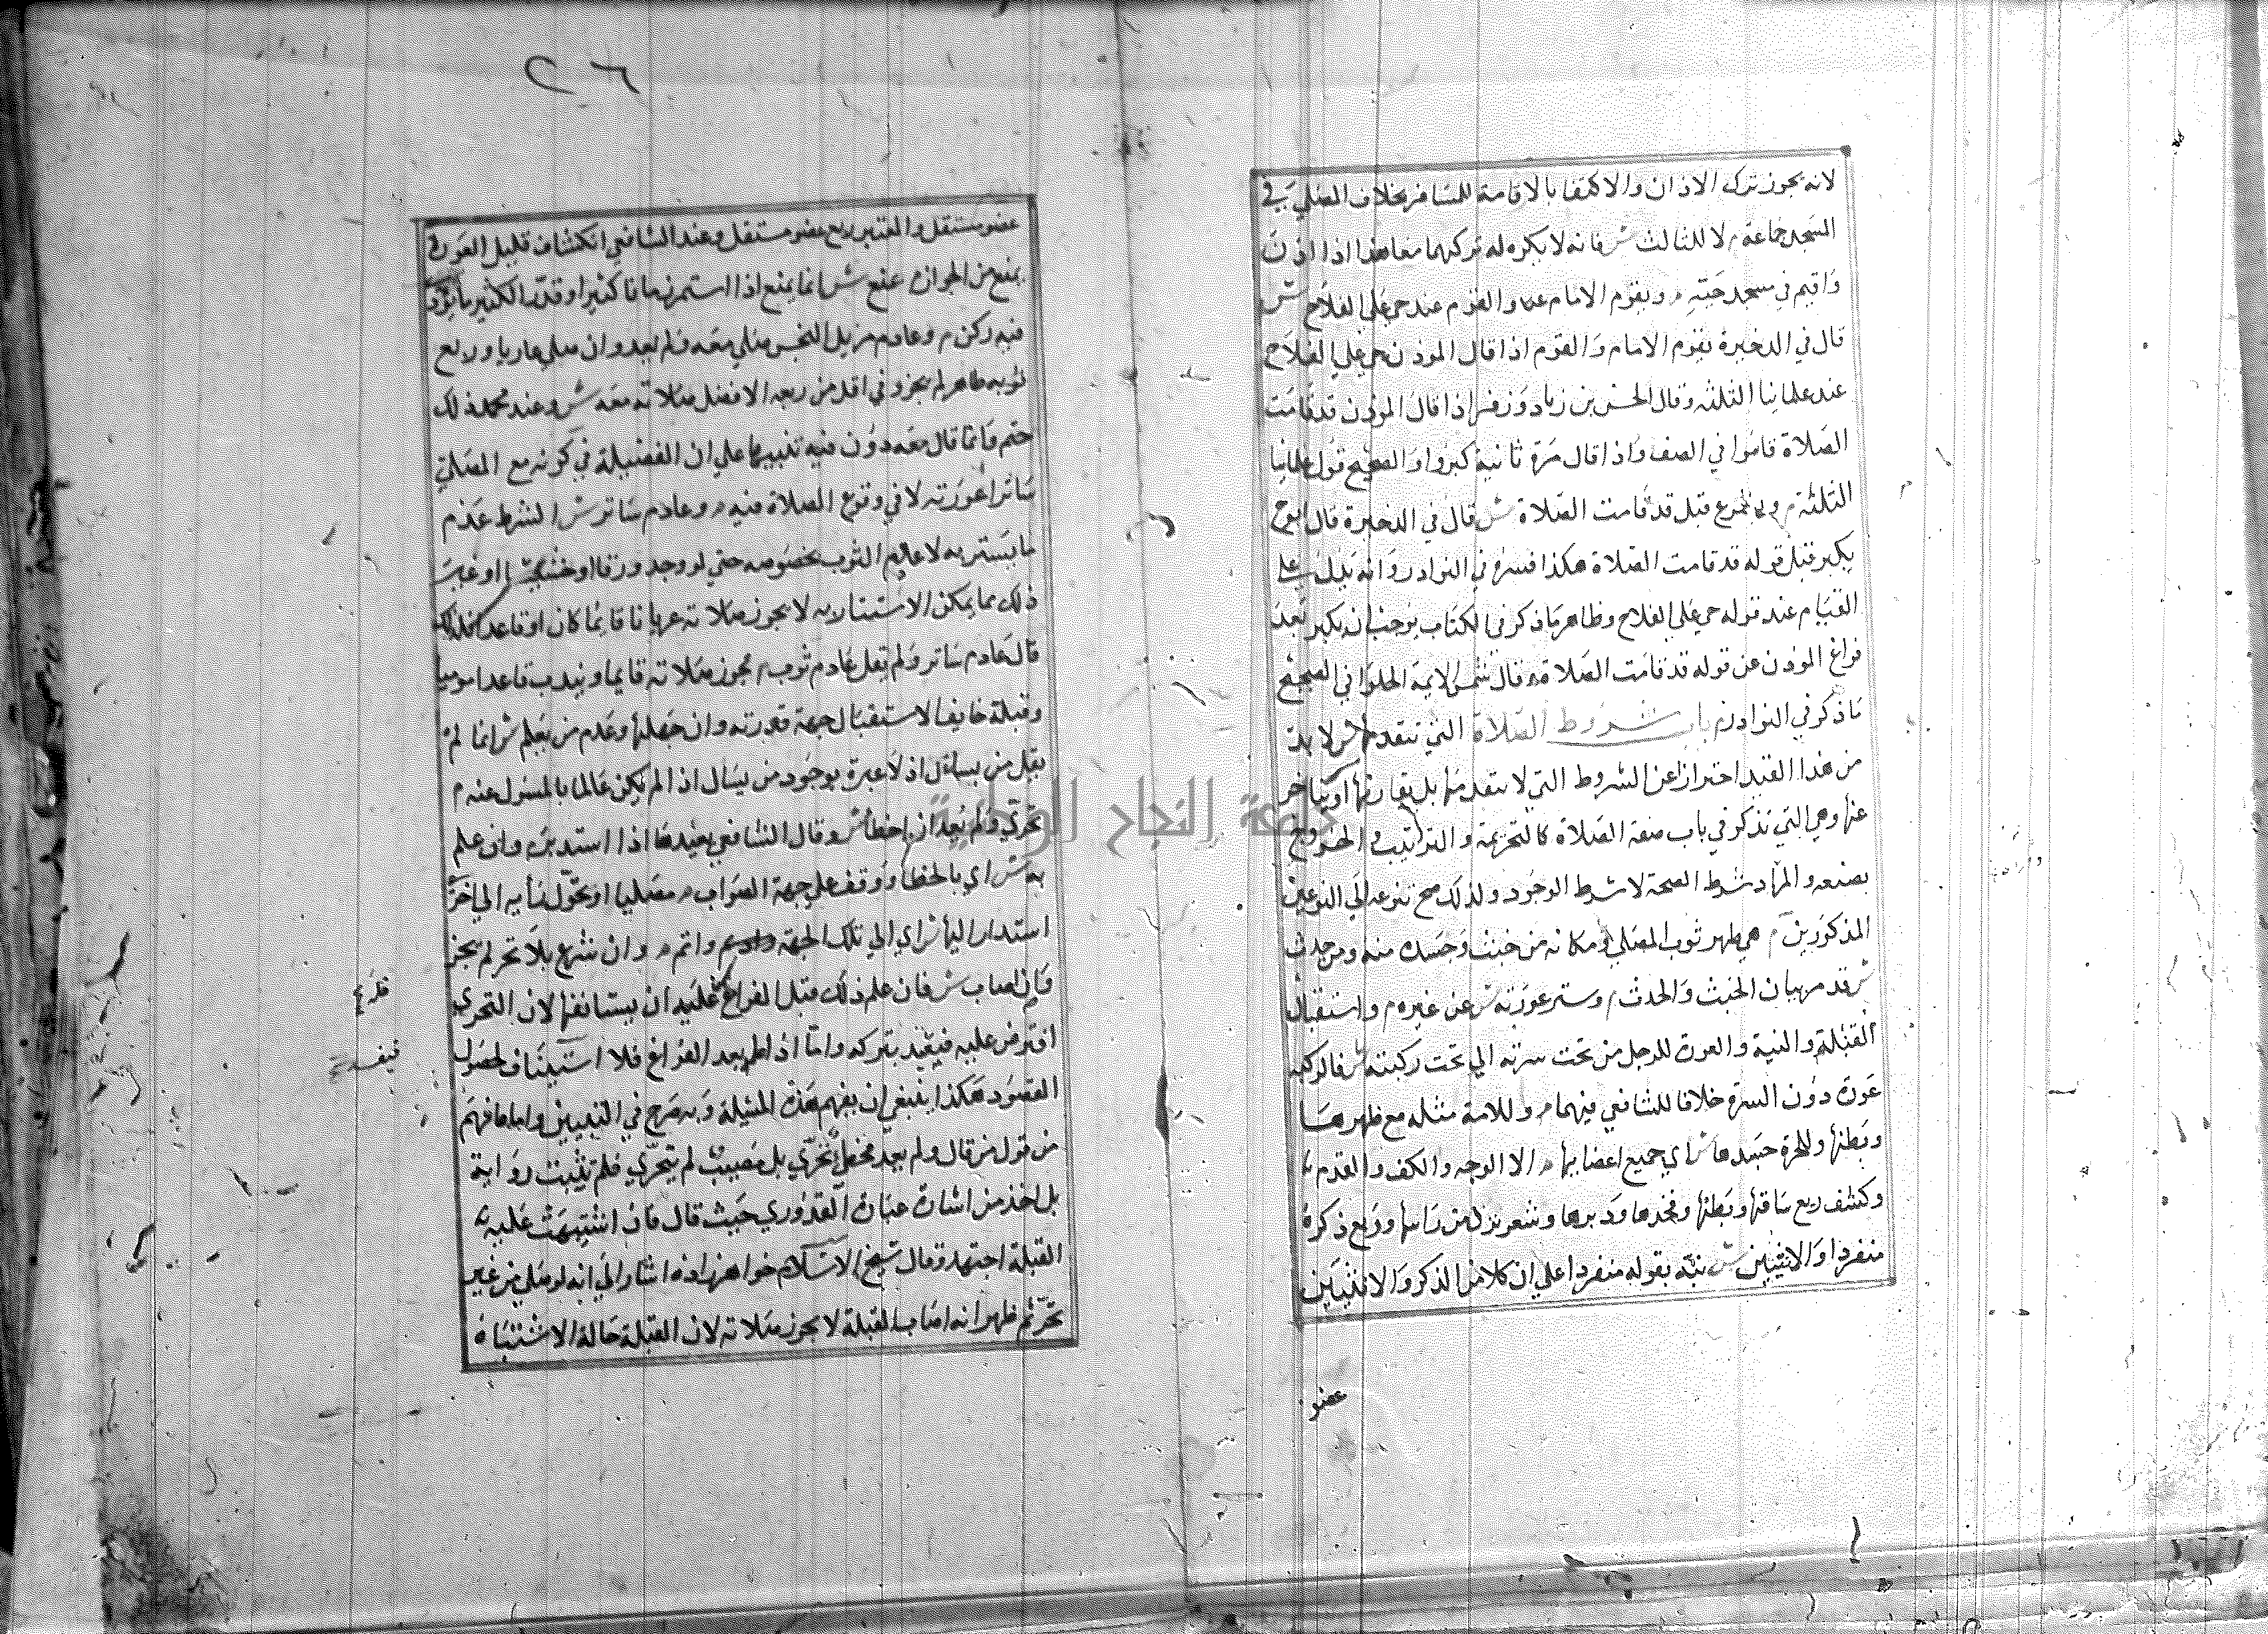 لانه يجوز ترك الاذان والاكتفا بالاقامة للمسافر بخلاف المصلي في
المسجد جماعة م لا للثالث ش فانه لا يكره له تركهما معا هذا اذا اذن
واقيم في مسجد حيّه م ويقوم الامام والقوم عند حي علي الفلاح ش
قال في الذخيرة يقوم الامام والقوم اذا قال الموذن حي علي الفلاح
عند علمائنا الثلثه وقال الحسن بن زياد وزفر اذا قال الموذن قد قامت
الصلاة قاموا في الصف واذا قال مرة ثانية كبروا والصحيح قول علمائنا
الثلثة م ويشرع قبل قد قامت الصلاة ش قال في الذخيرة قال ابوح
يكبر قبل قوله قد قامت الصلاة هكذا فسره في النوادر وانه يدل علي
القيام عند قوله حي علي الفلاح وظاهر ماذكر في الكتاب يوجب ان يكبر بعد
فراغ الموذن عن قوله قد قامت الصلاة قال شمس الايمة الحلواني الصحيح
ماذكر في النوادر م باب شروط الصلاة التي تتقدمها ش لا بد
من هذا القيد احترازا عن الشروط التي لا تتقدمها بل يقارنها او يتاخر
عنها وهي التي تذكر في باب صفة الصلاة كالتحريمة والترتيب والخروج
بصنعه والمراد شرط الصحة لا شرط الوجود ولذلك صح تنوعه الي النوعين
المذكورين م هي طهر ثوب المصلي ومكانه من خبث وجسده منه ومن حدث
ش قد مر بيان الخبث والحدث م وستر عورته ش عن غيره م واستقبال
القبلة والنية والعورة للرجل من تحت سرته الي تحت ركبته ش فالركبة
عورة دون السرة خلافا للشافعي فيهما م وللامة مثله مع ظهرها
وبطنها وللحرة جسدها ش اي جميع اعضايها م الا الوجه والكف والقدم
وكشف ربع ساقها وبطنها وفخذها ودبرها وشعر نزل من راسها وربع ذكره
منفردا والانثيين ش نبّه بقوله منفردا علي ان كلا من الذكر والانثيين
عضو
٢٦
عضو مستقل والمعتبر ربع عضو مستقل وعند الشافعي انكشاف قليل العورة
يمنع من الجواز م يمنع ش انما يمنع اذا استمر زمانا كثيرا وقدّر الكثير ما يؤدي
فيه ركن م وعادم مزيل النجس صلي معه ولم يعد وان صلي عاريا وربع
ثوبه طاهر لم يجز وفي اقل من ربعه الافضل صلاته معه ش وعند محمد ذلك
حتم وانما قال معه دون فيه تنبيها علي ان الفضيلة في كونه مع المصلي
ساترا عورته لا في وقوع الصلاة فيه م وعادم ساتر ش الشرط عدم
ما يستر به لا عدم الثوب بخصوصه حتي لو وجد ورقا او حشيشا او غير
ذلك مما يمكن الاستتار به لا يجوز صلاته عريانا قايما كان او قاعدا فلذلك
قال عادم ساتر ولم يقل عادم ثوب م يجوز صلاته قايما ويندب قاعدا موميا
وقبلة خايف الاستقبال جهة قدرته وان جهلها وعدم من يعلم ش انما لم
يقل من يساءل اذ لا عبرة بوجود من يسال اذا لم يكن عالما بالمسؤل عنه م
تحرّي ولم يعد ان اخطأ ش وقال الشافعي يعيدها اذا استدبر وان علم
به ش اي بالخطأ ووقف علي جهة الصواب م مصليا او تحوّل رأيه الي اخري
استدار اليها ش اي الي تلك الجهة واتم م وان شرع بلا تحر لم يجز
وان اصاب ش فان علم ذلك قبل الفراغ فعليه ان يستانفها لان التحري
افترض عليه فيعيد بتركه وامّا اذا علم بعد الفراغ فلا استيناف لحصول
المقصود هكذا ينبغي ان يفهم هذة المسئلة وبه صرح في التبيين واما ما فهم
من قول من قال ولم يعد مخطئ تحرّي بل مصيب لم يتحرّي فلم تثبت رواية
بل اخذ من اشارة عبارة القدوري حيث قال فان اشتبهت عليه
القبلة اجتهد وقال شيخ الاسلام خواهرزاده اشار الي انه لو صلي من غير
تحرّ ثم ظهر انه اصاب القبلة لا يجوز صلاته لان القبلة حالة الاشتباه
جامعة النجاح الوطنية